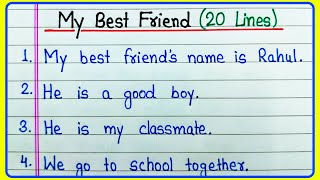 My Best Friend (20 Lines)
1. My best friend's name is Rahul.
2. He is a good boy.
3. He is my classmate.
4. We go to school together.